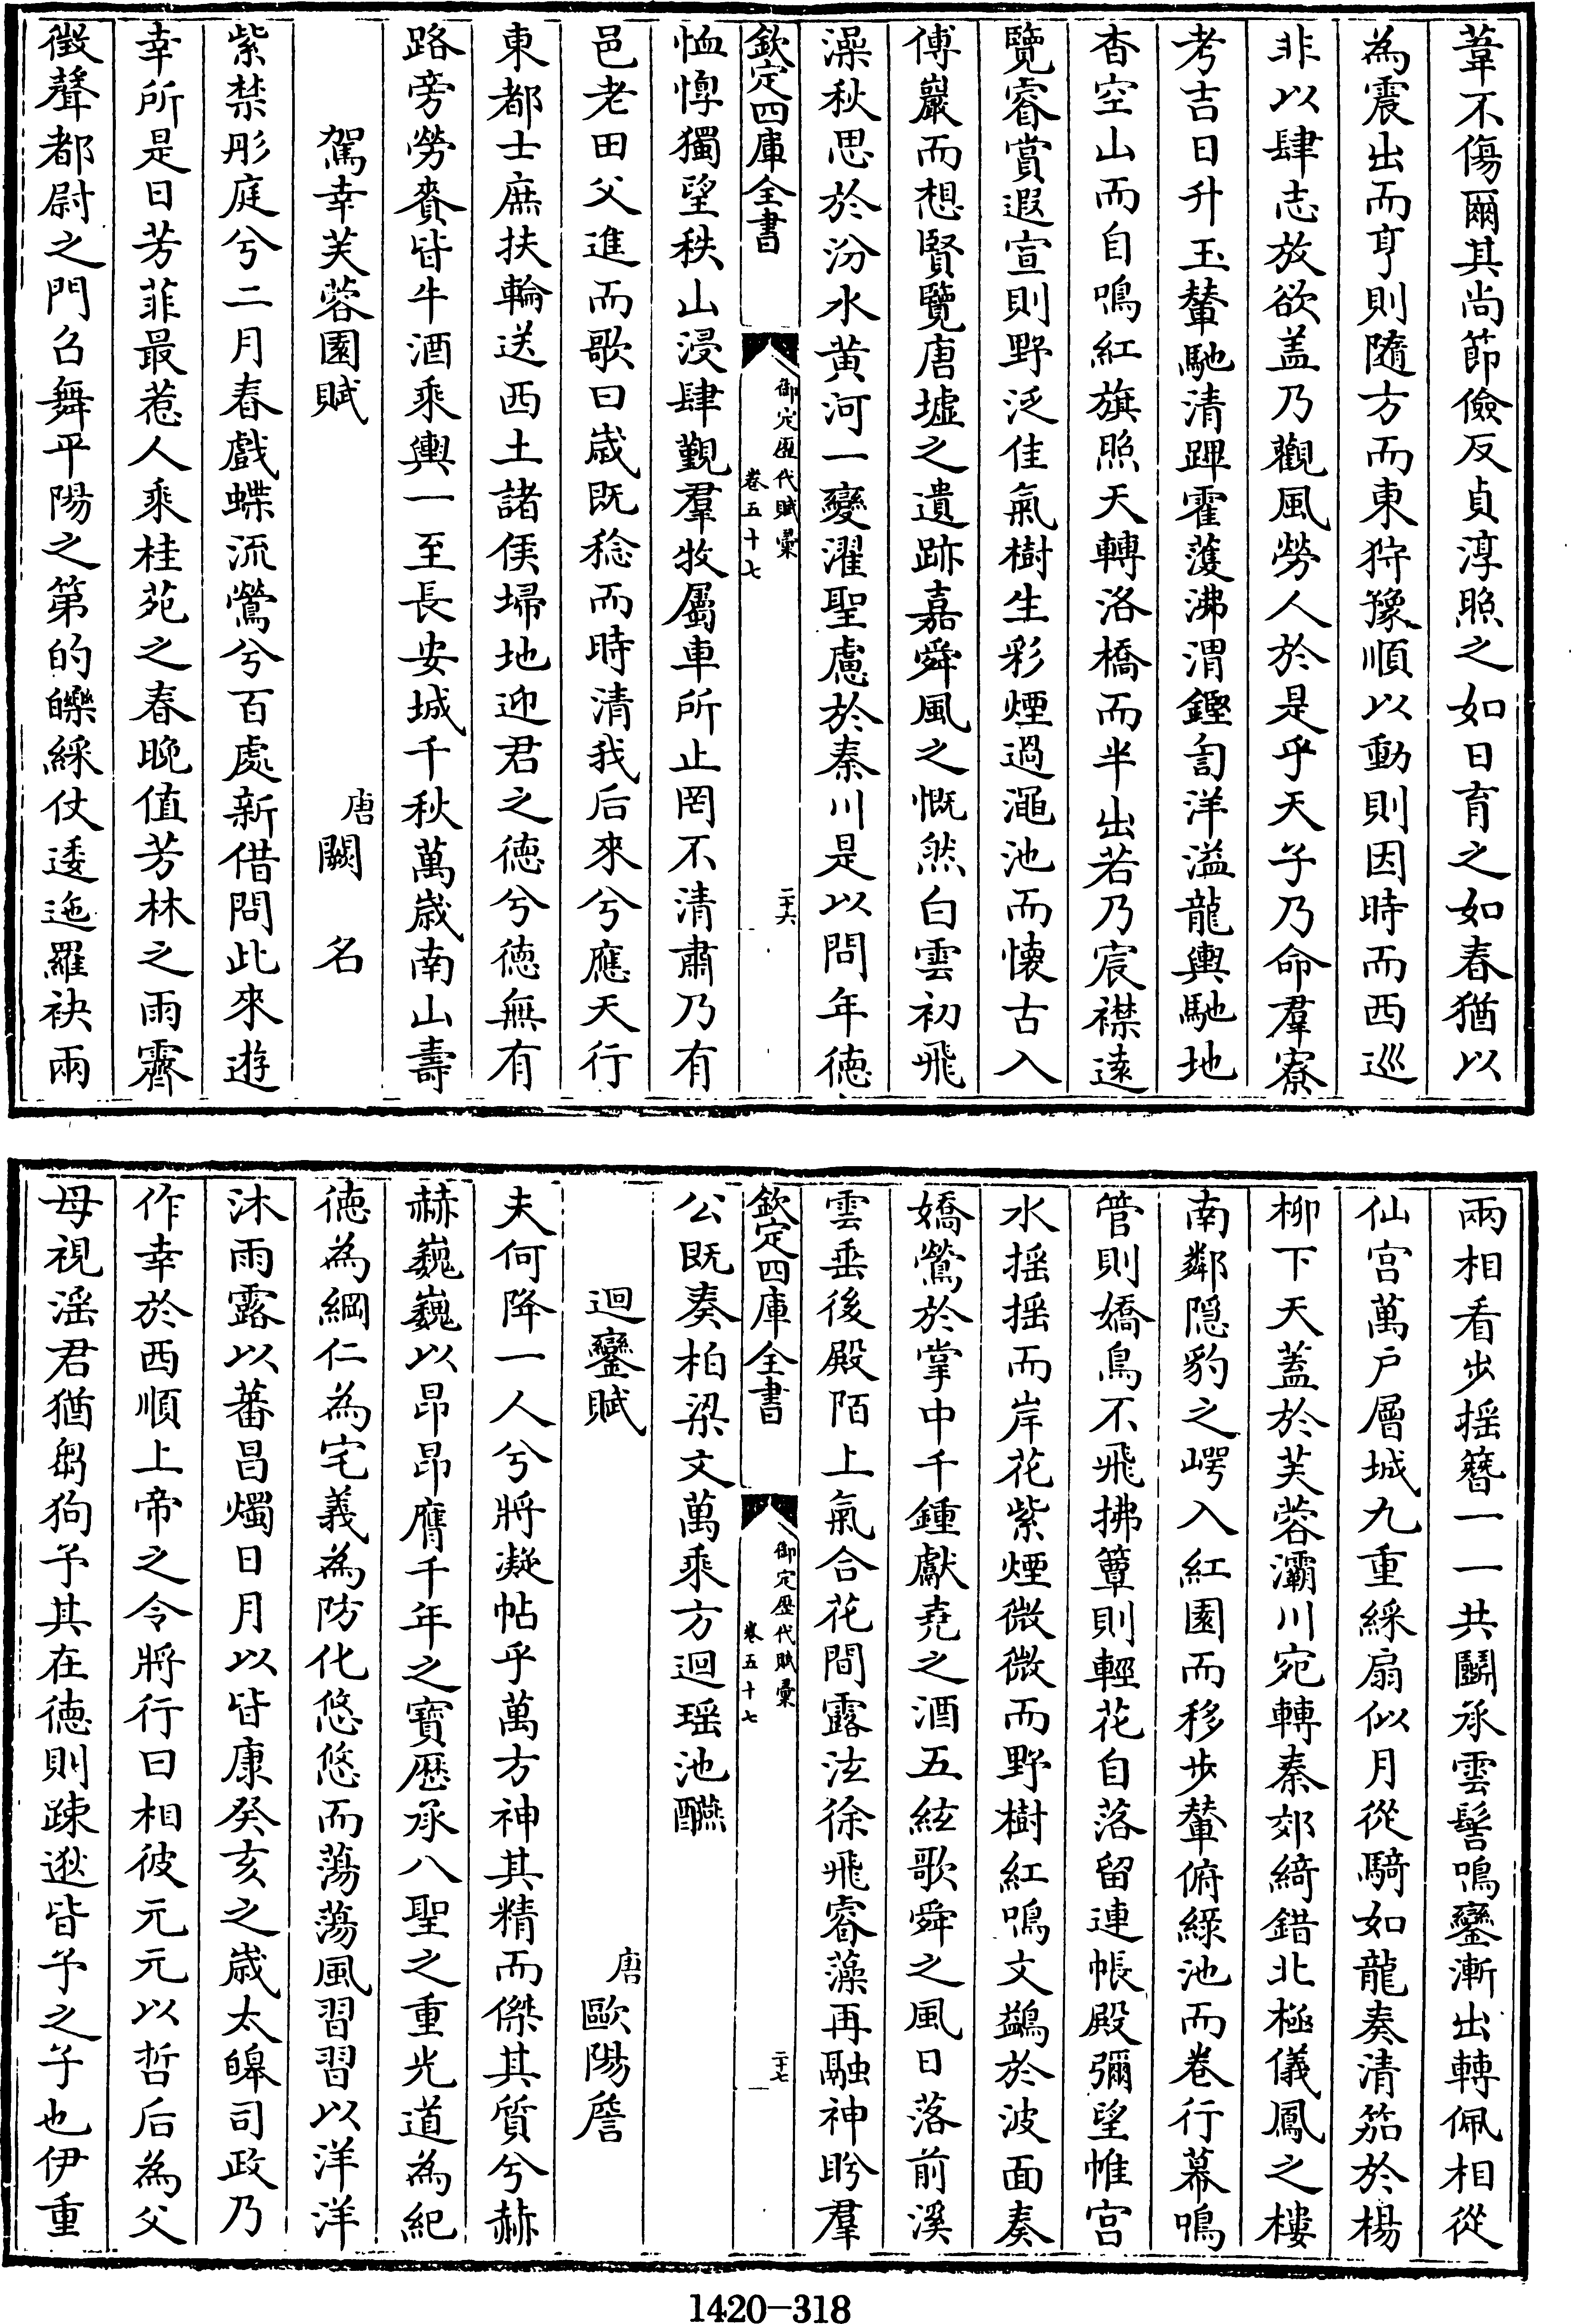 葦不傷爾其尚節儉反貞淳照之如日育之如春猶以
為震出而亨則隨方而東狩豫順以動則因時而西巡
非以肆志放欲盖乃觀風勞人於是乎天子乃命羣寮
考吉日升玉輦馳清蹕霍濩沸渭鏗訇洋溢龍輿馳地
杳空山而自鳴紅旗照天轉洛橋而半出若乃宸襟遠
覽睿賞遐宣則野泛佳氣樹生彩煙過澠池而懐古入
傅巖而想賢覽唐墟之遺跡嘉舜風之慨然白雲初飛
澡秋思於汾水黄河一變濯聖慮於秦川是以問年徳
欽定四庫全書
御定歴代賦彙
卷五十七
二十六
恤惸獨望秩山浸肆覲羣牧屬車所止罔不清肅乃有
邑老田父進而歌曰歳既稔而時清我后來兮應天行
東都士庶扶輪送西土諸侯埽地迎君之徳兮徳無有
路旁勞賚皆牛酒乘輿一至長安城千秋萬歳南山壽
駕幸芙蓉園賦
唐闕名
紫禁彤庭兮二月春戲蝶流鶯兮百處新借問此來遊
幸所是日芳菲最惹人乘桂苑之春晚值芳林之雨霽
徵聲都尉之門召舞平陽之第的皪綵仗逶迤羅袂兩
兩相看步揺簪一一共鬭承雲髻鳴鑾漸出轉佩相從
仙宫萬户層城九重綵扇似月從騎如龍奏清笳於楊
栁下天蓋於芙蓉灞川宛轉秦郊綺錯北極儀鳳之樓
南鄰隠豹之崿入紅園而移步輦俯緑池而卷行幕鳴
管則嬌鳥不飛拂簟則輕花自落留連帳殿彌望帷宫
水揺揺而岸花紫煙微微而野樹紅鳴文鷁於波面奏
嬌鶯於掌中千鍾獻堯之酒五絃歌舜之風日落前溪
雲垂後殿陌上氣合花間露泫徐飛睿藻再融神盻羣
欽定四庫全書
御定歴代賦彙
卷五十七
二十七
公既奏柏梁文萬乘方迴瑶池醼
迴鑾賦
唐歐陽詹
夫何降一人兮將凝帖乎萬方神其精而傑其質兮赫
赫巍巍以昂昂膺千年之寳歴承八聖之重光道為紀
徳為綱仁為宅義為防化悠悠而蕩蕩風習習以洋洋
沐雨露以蕃昌燭日月以皆康癸亥之歳太皥司政乃
作幸於西順上帝之令將行曰相彼元元以哲后為父
母視滛君猶芻狗予其在徳則踈逖皆予之子也伊重
1420-318